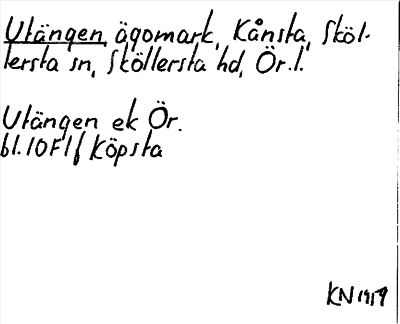 Utängen, ägomark, Kånsta, Sköl-
lersta sn, Sköllersta hd, Ör.l.
Utängen ek Ör.
bl.10F1f Köpsta
KN 1959